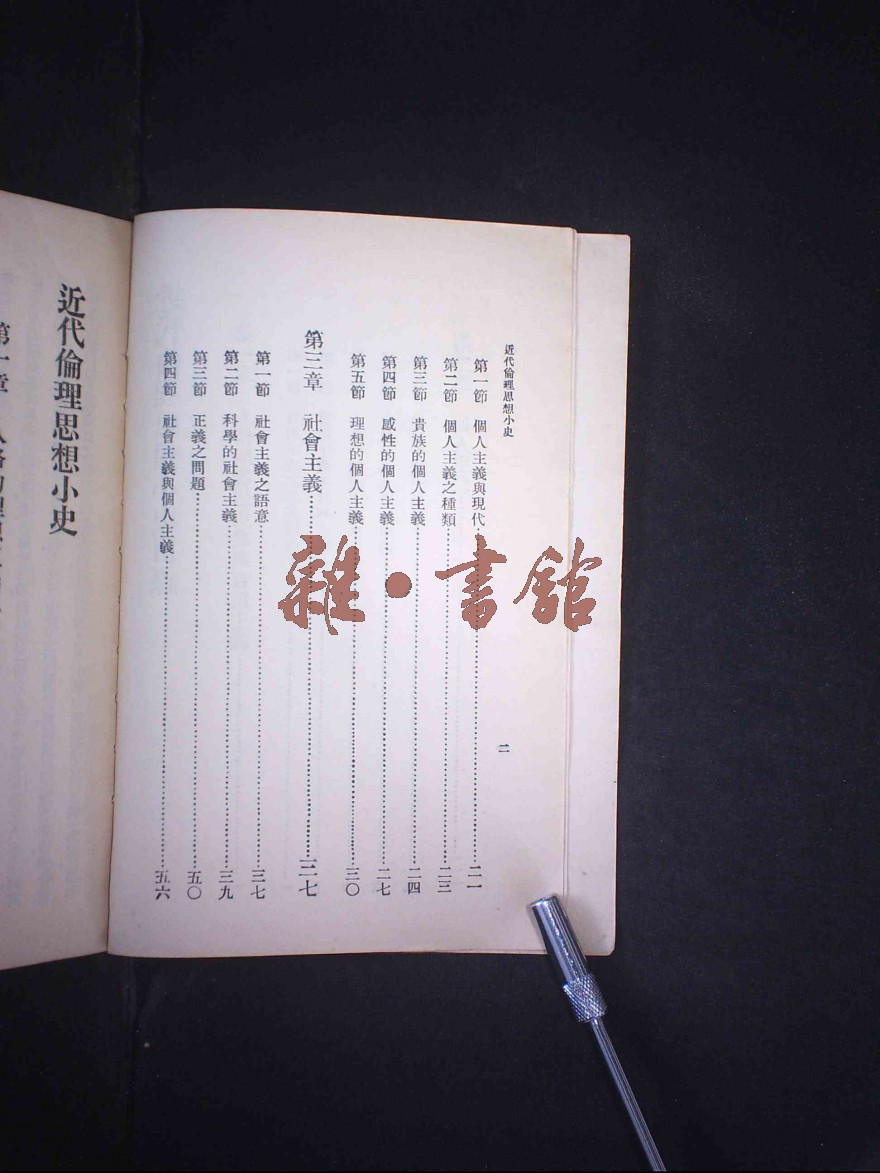 近代倫理思想小史
二
第一節 個人主義與現代……二一
第二節 個人主義之種類……二三
第三節 貴族的個人主義……二四
第四節 感性的個人主義……二七
第五節 理想的個人主義……三〇
第三章 社會主義……三七
第一節 社會主義之語意……三七
第二節 科學的社會主義……三九
第三節 正義之問題……五〇
第四節 社會主義與個人主義……五六
雜·書館
近代倫理思想小史
第一章